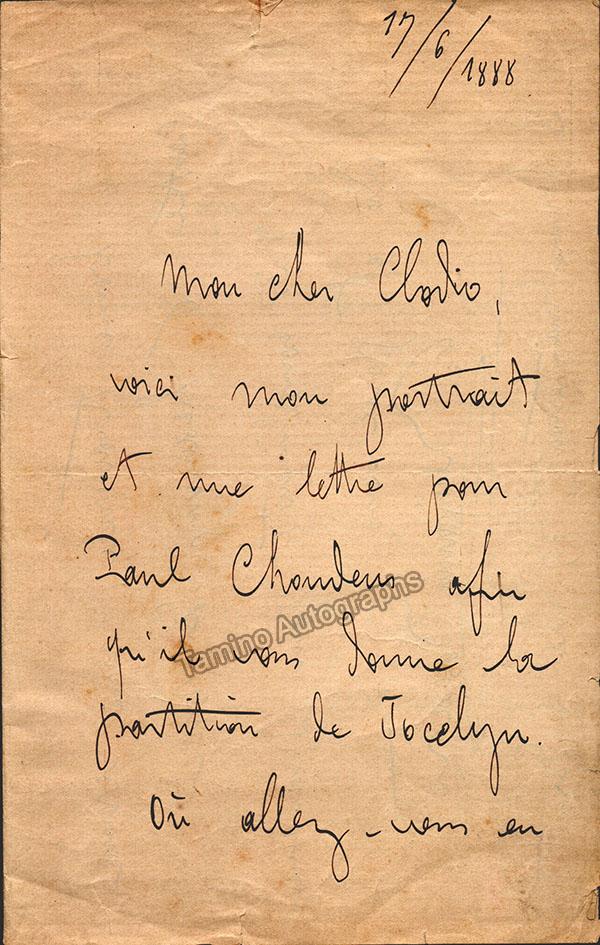 17/6/1888
Mon cher Clodio,
voici mon portrait
et une lettre pour
Paul Choudens afin
qu'il vous donne la
partition de Jocelyn.
Où allez-vous en
Tamino Autographs